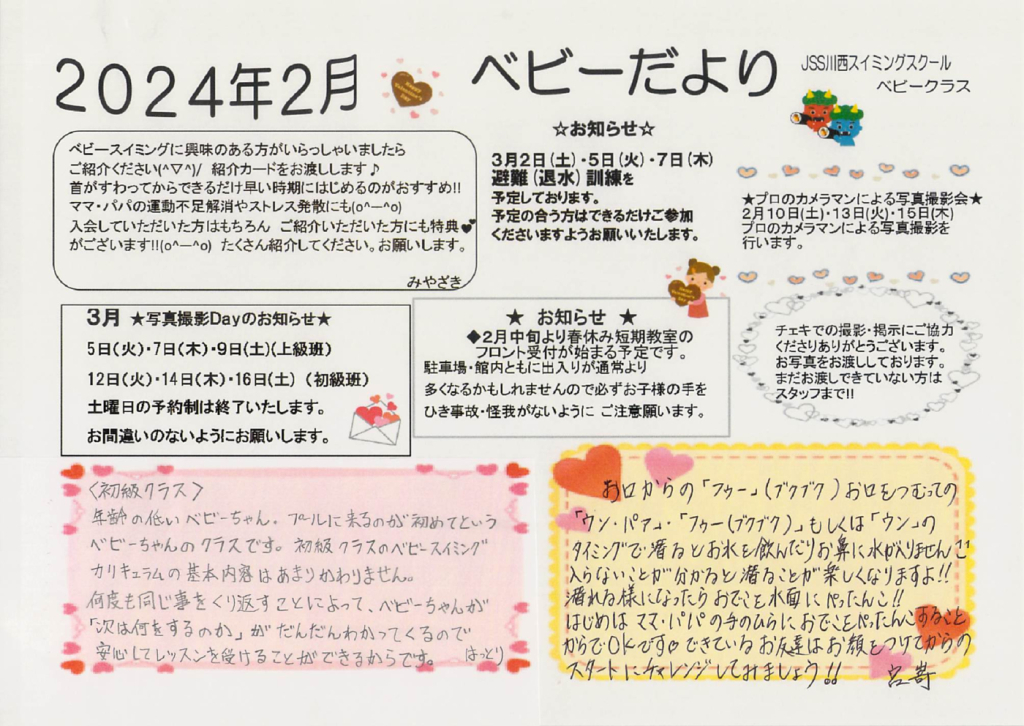 2024年2月
ベビーだより
JSS川西スイミングスクール
ベビークラス
ベビースイミングに興味のある方がいらっしゃいましたら
ご紹介ください(^▽^)/ 紹介カードをお渡しします♪
首がすわってからできるだけ早い時期にはじめるのがおすすめ!!
ママ・パパの運動不足解消やストレス発散にも(o^ー^o)
入会していただいた方はもちろん ご紹介いただいた方にも特典
がございます!!(o^ー^o) たくさん紹介してください。お願いします。
みやざき
☆お知らせ☆
3月2日(土)・5日(火)・7日(木)
避難(退水)訓練を
予定しております。
予定の合う方はできるだけご参加
くださいますようお願いいたします。
★プロのカメラマンによる写真撮影会★
2月10日(土)・13日(火)・15日(木)
プロのカメラマンによる写真撮影を
行います。
3月 ★写真撮影Dayのお知らせ★
5日(火)・7日(木)・9日(土)(上級班)
12日(火)・14日(木)・16日(土) (初級班)
土曜日の予約制は終了いたします。
お間違いのないようにお願いします。
★ お知らせ ★
◆2月中旬より春休み短期教室の
フロント受付が始まる予定です。
駐車場・館内ともに出入りが通常より
多くなるかもしれませんので必ずお子様の手を
ひき事故・怪我がないように ご注意願います。
チェキでの撮影・掲示にご協力
くださりありがとうございます。
お写真をお渡ししております。
まだお渡しできていない方は
スタッフまで!!
〈初級クラス〉
年齢の低いベビーちゃん・プールに来るのが初めてという
ベビーちゃんのクラスです。初級クラスのベビースイミング
カリキュラムの基本内容はあまりかわりません。
何度も同じ事をくり返すことによって、ベビーちゃんが
「次は何をするのか」がだんだんわかってくるので
安心してレッスンを受けることができるからです。 はっとり
お口からの「フゥー」(ブクブク)お口をつむっての
「ウン・パァ」・「フゥー(ブクブク)」もしくは「ウン」の
タイミングで潜るとお水を飲んだりお鼻に水が入りません♡
入らないことが分かると潜ることが楽しくなりますよ!!
潜れる様になったらおでこを水面にぺったんこ!!
はじめはママ・パパの手のひらにおでこをぺったんこすること
からでOKです♡できているお友達はお顔をつけてからの
スタートにチャレンジしてみましょう!! 宮嵜